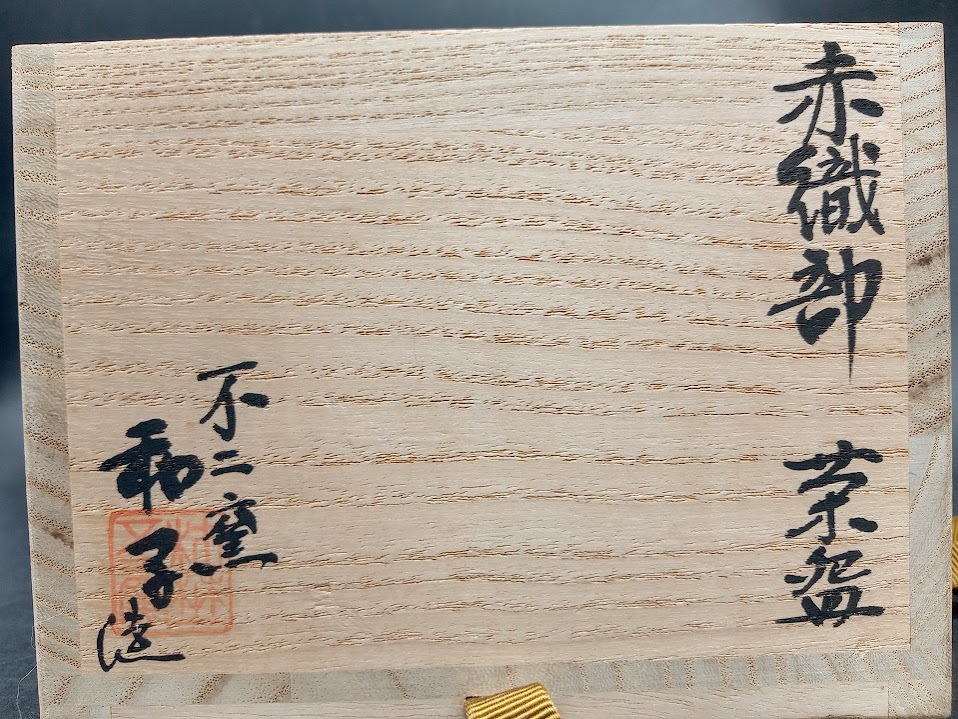 赤織部 茶盌
不二窯
子造